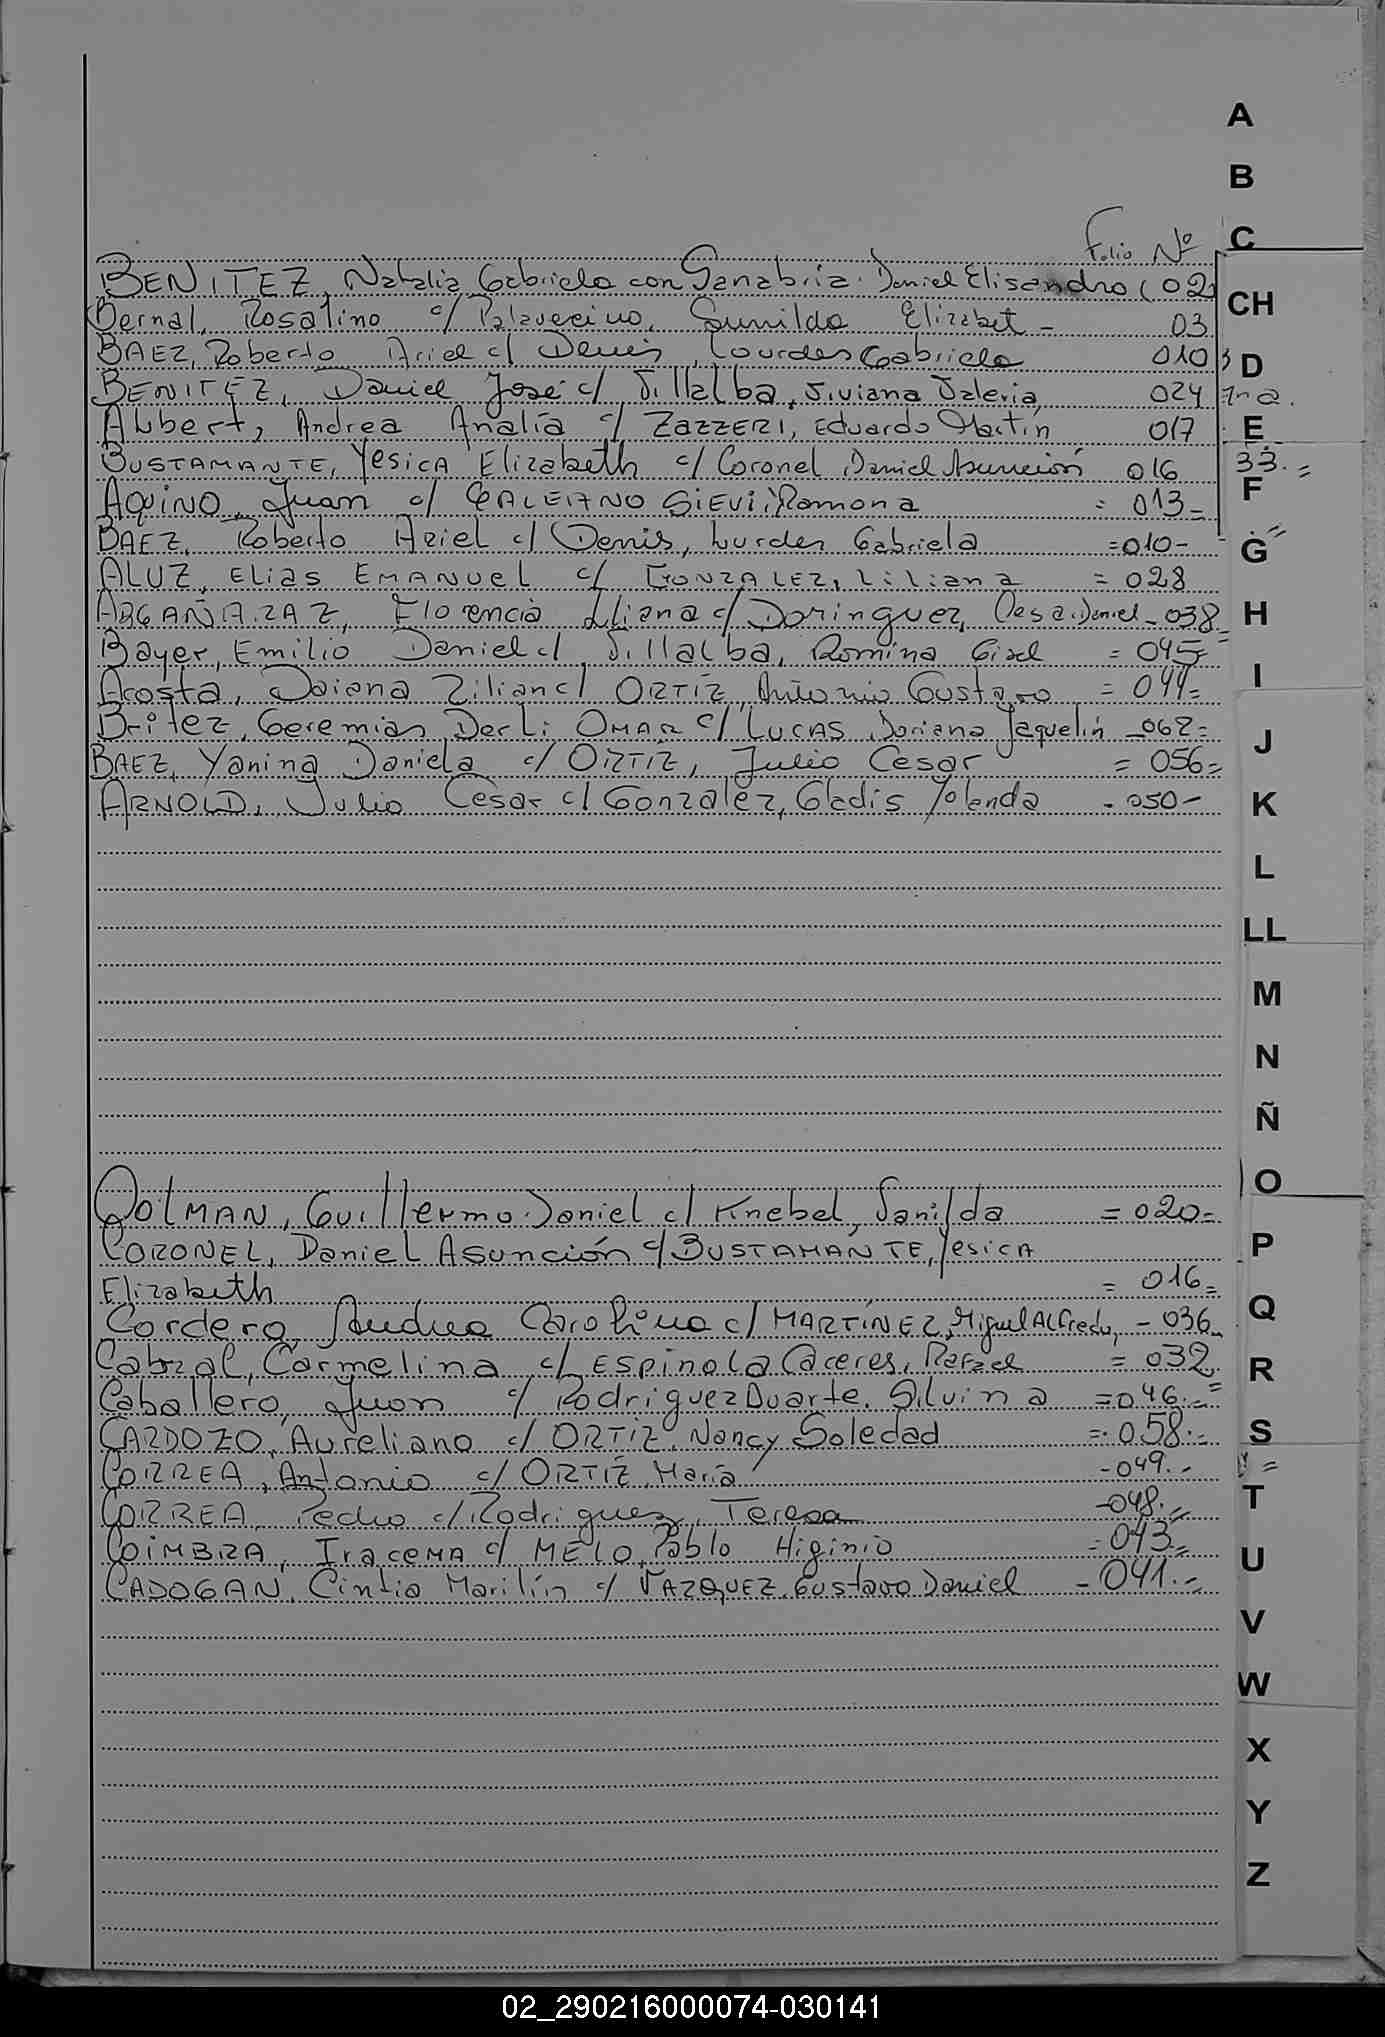 A
B
C
Folio Nº
BENITEZ, Natalia Gabriela con Sanabria. Daniel Elisandro (02
CH
Bernal, Rosalino c/ Palavecino, Sunilda Elizabet - 03
BAEZ, Roberto Ariel c/ Denis, Lourdes Gabriela 010
D
BENITEZ, Daniel José c/ Villalba, Viviana Valeria 024
Albert, Andrea Analía c/ ZAZZERI, Eduardo Martín 017
E
BUSTAMANTE, Yesica Elizabeth c/ Coronel Daniel Asunción 016
33.=
F
AQUINO, Juan c/ GALEANO Ramona = 013=
BAEZ, Roberto Ariel c/ Denis, Lurdes Gabriela =010-
G
ALUZ, Elias EMANUEL c/ GONZALEZ, Liliana = 028
ARGAÑARAZ, Florencia Liliana c/ Dominguez, Daniel - 038
H
Bayer, Emilio Daniel c/ Villalba, Romina Gisel = 045=
I
Acosta, Daiana Lilian c/ ORTÍZ, Antonio Gustavo = 044=
Britez, Geremias Derli OMAR c/ LUCAS, Doriana Jaquelin -062=
J
BAEZ, Yanina Daniela c/ ORTÍZ, Julio Cesar = 056=
ARNOLD, Julio Cesar c/ Gonzalez, Gladis Yolanda - 050-
K
L
LL
M
N
Ñ
O
DOLMAN, Guillermo Daniel c/ Knebel, Sanilda = 020=
CORONEL, Daniel Asunción c/ BUSTAMANTE, Yesica
P
Elizabeth = 016=
Q
Cordero, Andrea Carolina c/ MARTÍNEZ, Miguel Alfredo, - 036
Cabral, Carmelina c/ Espinola Caceres, Rafael = 032
R
Caballero, Juan c/ Rodriguez Duarte, Silvina =046.=
CARDOZO, Aureliano c/ ORTÍZ, Nancy Soledad =.058.-
S
CORREA, Antonio c/ ORTÍZ, María -049.-
CORREA, Pedro c/ Rodriguez, Teresa -048.=
T
COIMBRA, Iracema c/ MELO, Pablo Higinio - 043=
U
CADOGAN, Cintia Marilín c/ VAZQUEZ, Gustavo Daniel - 041.=
V
W
X
Y
Z
02_290216000074-030141